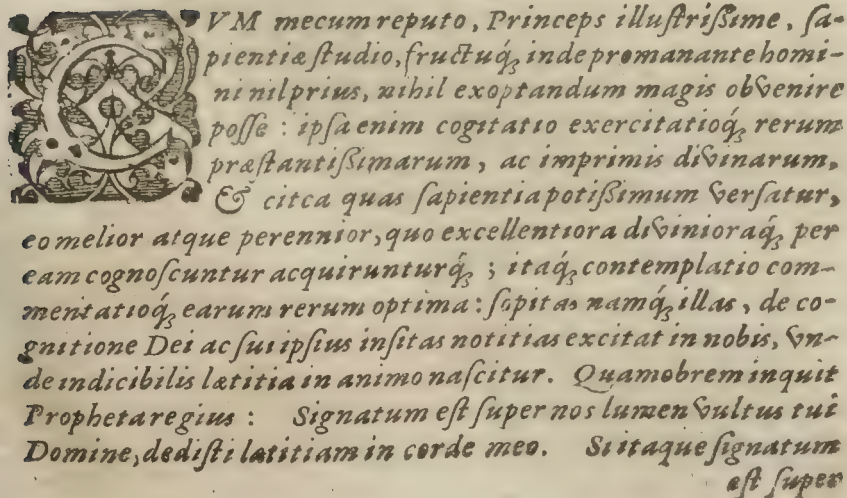 CVM mecum reputo, Princeps illuſtriſsime, ſa-
pientiæ ſtudio, fructuq́ꝫ inde promanante homi-
ni nil prius, nihil exoptandum magis obvenire
poſſe : ipſa enim cogitatio exercitatioq́ꝫ rerum
præſtantiſsimarum, ac imprimis divinarum,
& citca quas ſapientia potiſsimum verſatur,
eo melior atque perennior, quo excellentiora divinioraq́ꝫ per
eam cognoſcuntur acquirunturq́ꝫ ; itaq́ꝫ contemplatio com-
mentatioq́ꝫ earum rerum optima : ſopitas namq́ꝫ illas, de co-
gnitione Dei ac ſui ipſius inſitas notitias excitat in nobis, vn-
de indicibilis lætitia in animo naſcitur. Quamobrem inquit
Propheta regius : Signatum eſt ſuper nos lumen vultus tui
Domine, dediſti lætitiam in corde meo. Si itaque ſignatum
eſt ſuper